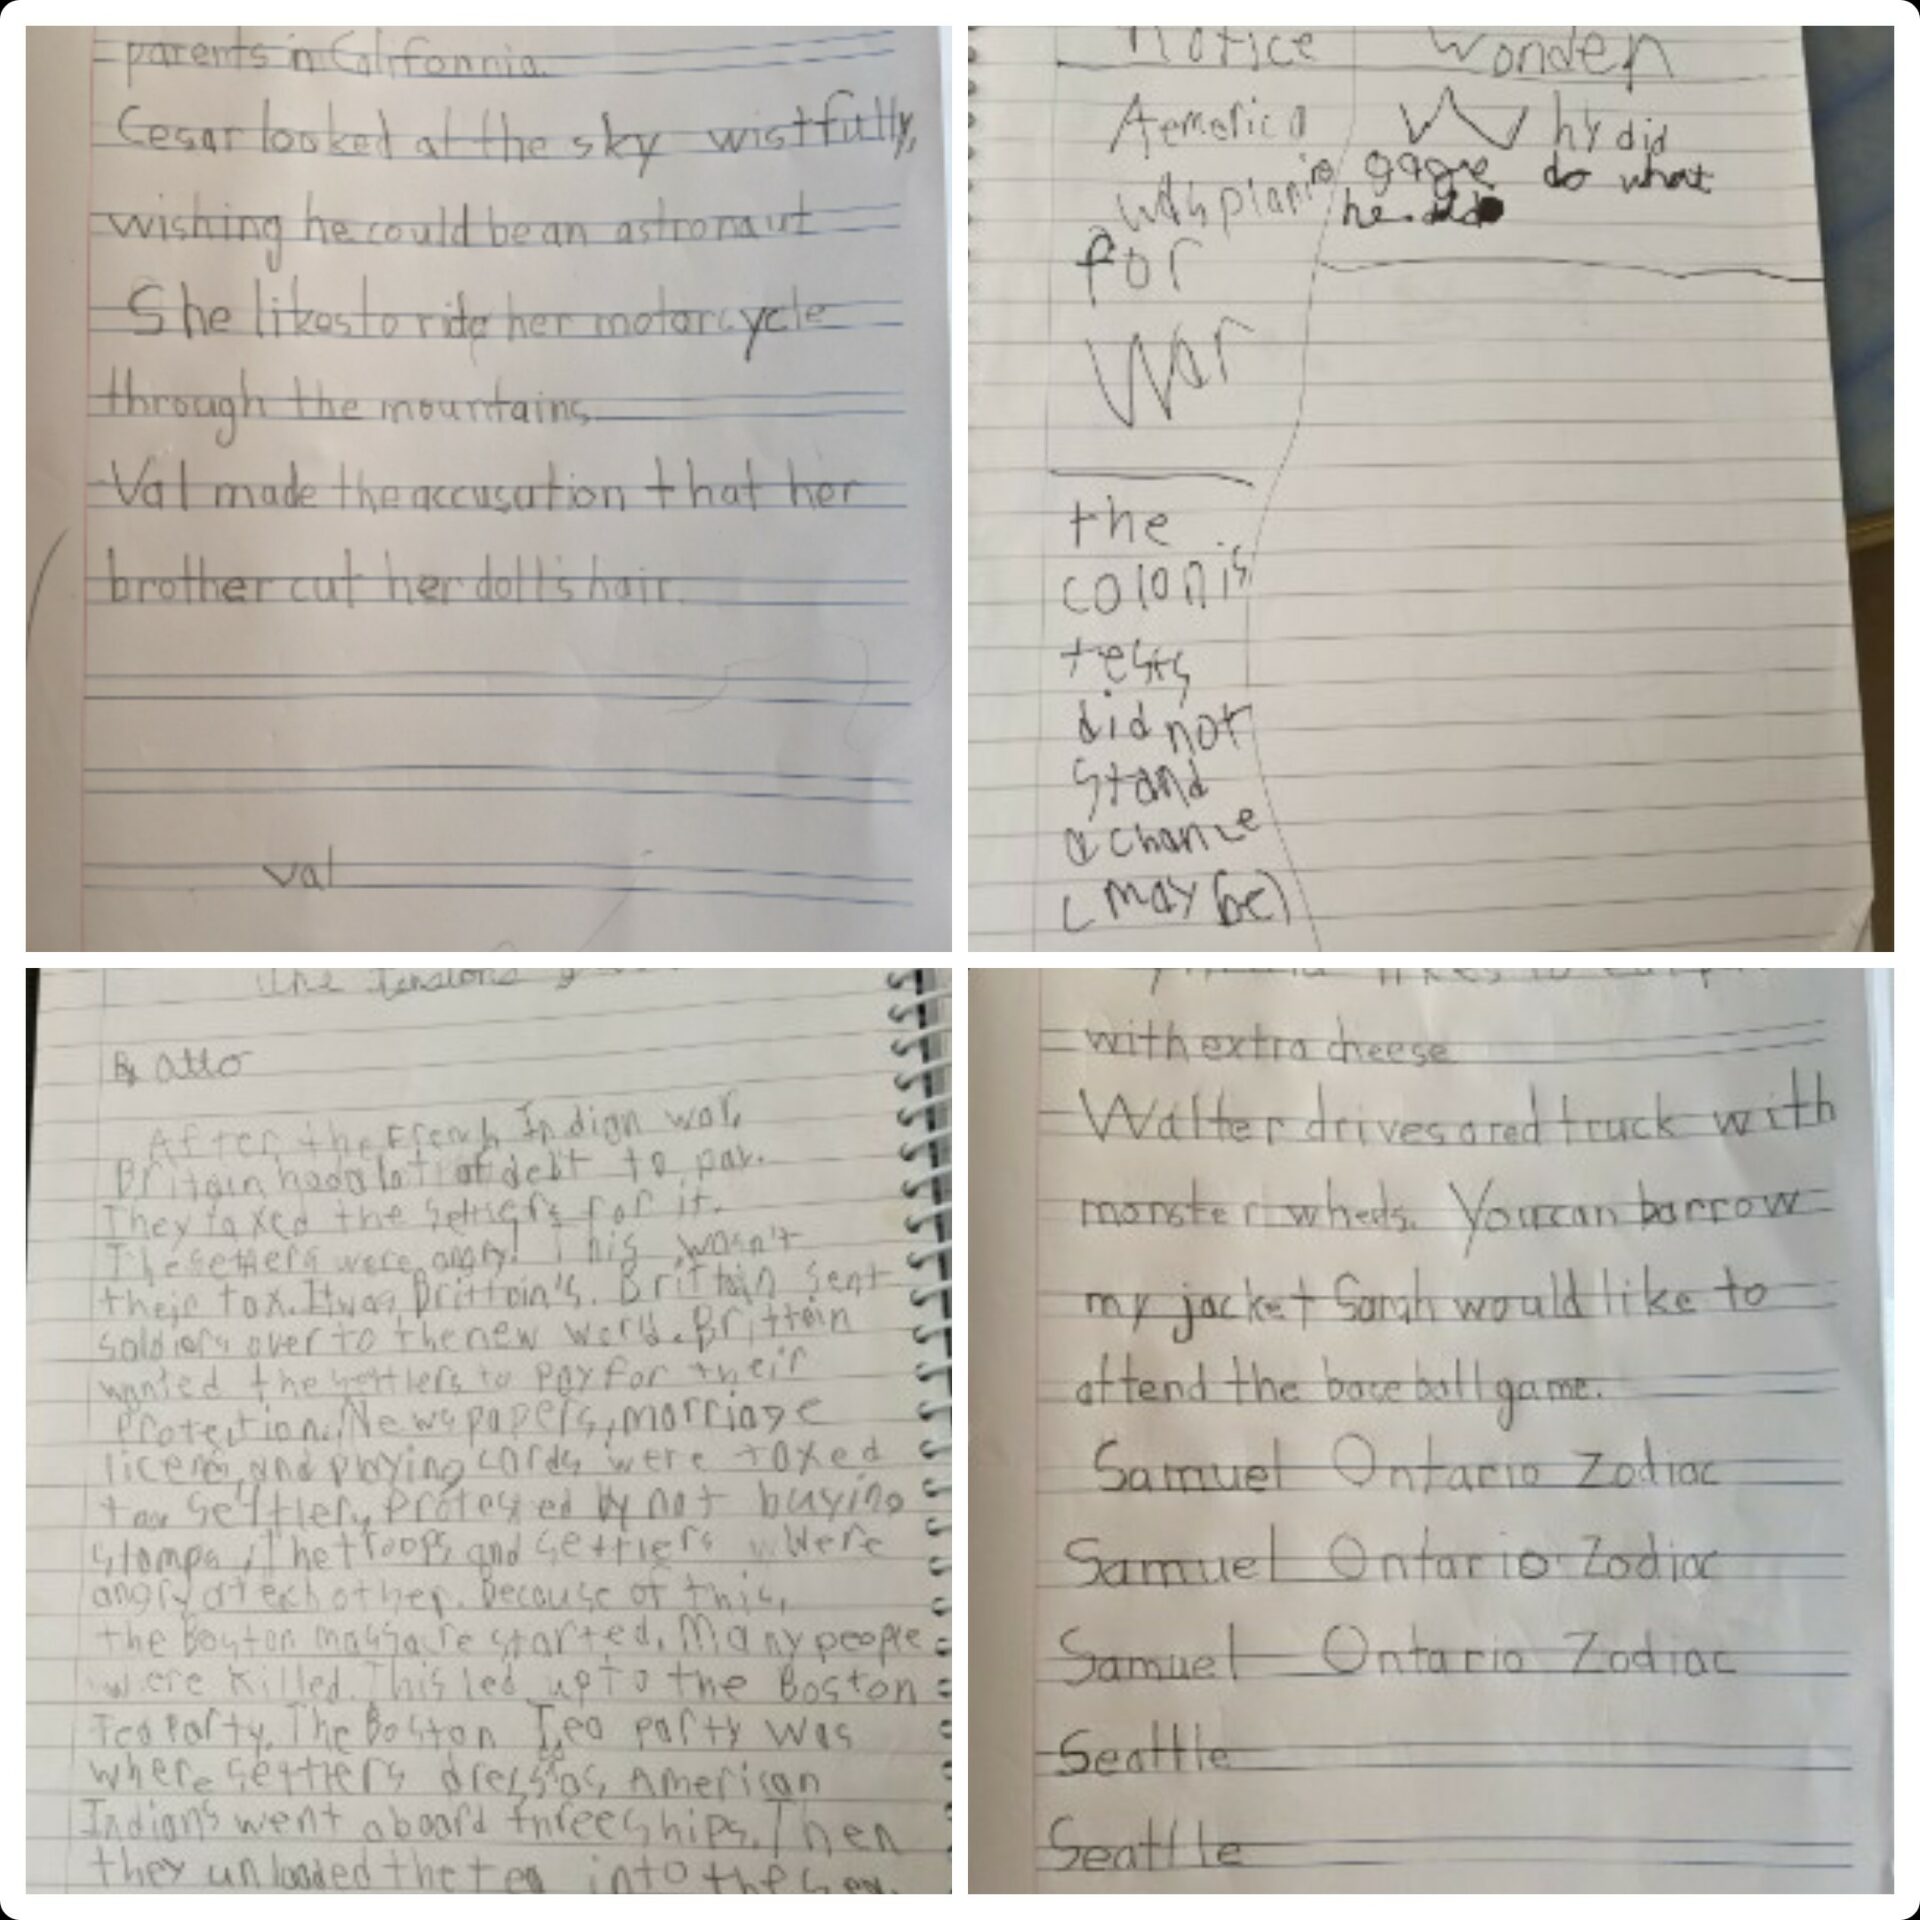 parents in California.
Cesar looked at the sky wistfully,
wishing he could be an astronaut
She likes to ride her motorcycle
through the mountains
Val made the accusation that her
brother cut her doll's hair.
val
Notice Wonder
Aemerica
was planing
for
War
the
colonis
tests
did not
stand
a chance
(may be)
Why did
gagne do what
he did
The Tensions
By Otto
After the French Indian war,
Britain had a lot of debt to pay.
They taxed the settlers for it.
The settlers were angry! This wasn't
their tax. It was Brittain's. Brittain sent
soldiers over to the new world. Brittain
wanted the settlers to pay for their
Protection. Newspapers, marriage
licens, and playing cards were taxed
too. Settlers protested by not buying
stamps. The troops and settlers were
angry at ech other. Because of this,
the Boston massacre started. Many people
were killed. This led up to the Boston
Tea Party. The Boston Tea party was
where settlers dress as American
Indians went aboard three ships. Then
they unloaded the tea into the sea.
likes
with extra cheese
Walter drives a red truck with
monster wheels. You can barrow
my jacket Sarah would like to
attend the baseball game.
Samuel Ontario Zodiac
Samuel Ontario Zodiac
Samuel Ontario Zodiac
Seattle
Seattle